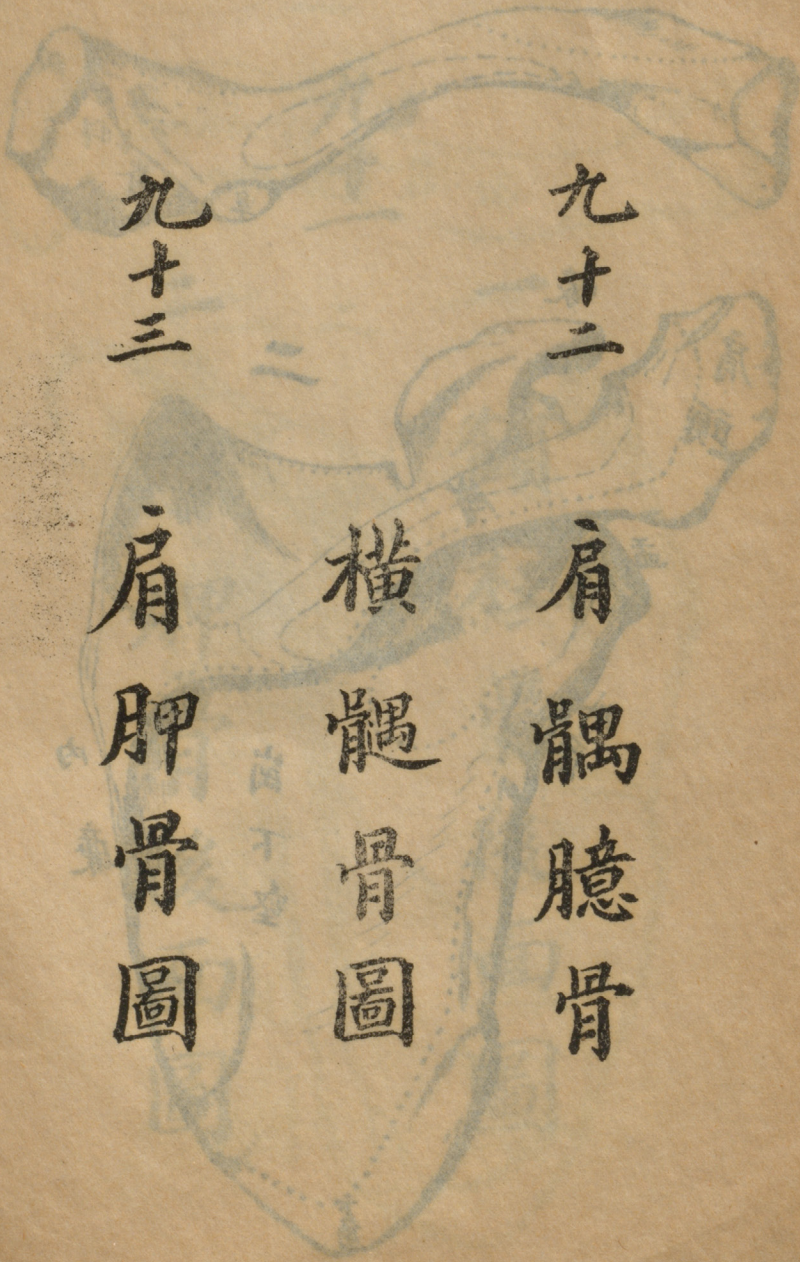 九十二 肩髃臆骨
橫髃骨圖
九十三 肩胛骨圖